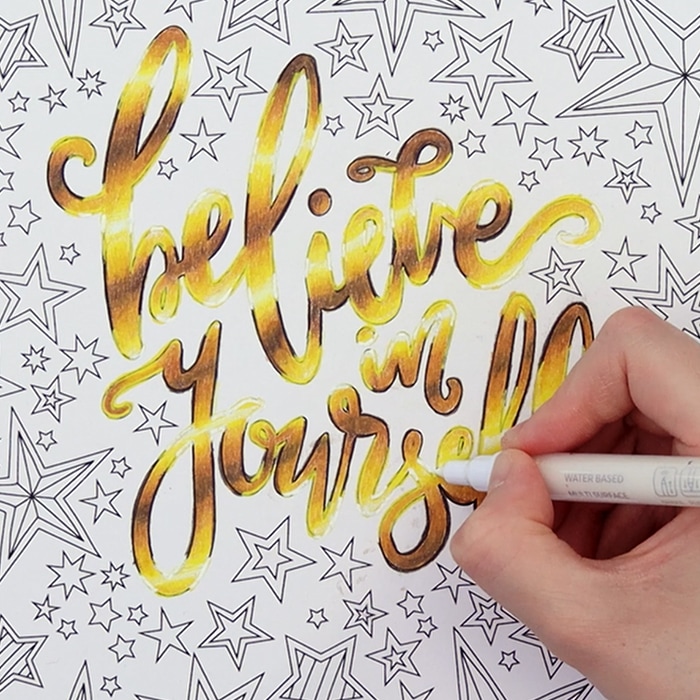 believe
in
yourself
WATER BASED
MULTI SURFACE